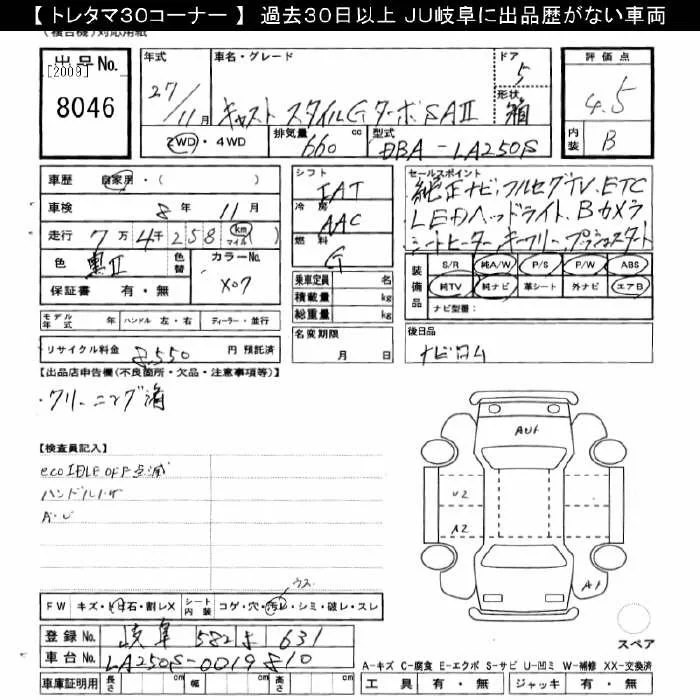 【トレタマ30コーナー】 過去30日以上 JU岐阜に出品歴がない車両
(複合機)対応用紙
出品No.
[2009]
8046
年式
27/11月
車名・グレード
キャスト スタイルGターボSAⅡ
ドア
5
形状
箱
2WD・4WD
排気量
660 cc
型式
DBA-LA250S
評価点
4.5
内装
B
車歴 自家用・( )
車検 8年 11月
走行 7万 4千 258 (km マイル)
色 黒Ⅱ 色替
カラーNo.
X07
保証書 有・無
モデル年式 年 ハンドル 左・右 ディーラー・並行
リサイクル料金 8,550 円 預託済
シフト
IAT
冷房
AAC
燃料
G
乗車定員 名
積載量 kg
総重量 kg
名変期限
月 日
セールスポイント
純正ナビ、フルセグTV、ETC
LEDヘッドライト、Bカメラ
シートヒーター、キーフリー、プッシュスタート
装備品
S/R 純A/W P/S P/W ABS
純TV 純ナビ 革シート 外ナビ エアB
ナビ型番:
後日品
ナビロム
【出品店申告欄(不良箇所・欠品・注意事項等)】
・クリーニング済
【検査員記入】
eco IDLE OFF点滅
ハンドルレザー
A・U
AU1
U2
A2
A1
ウス
FW キズ・トビ石・割レX シート内装 コゲ・穴・汚レ・シミ・破レ・スレ
登録No. 岐阜 582 631
車台No. LA250S-0019810
車庫証明用 長さ cm 幅 cm 高さ cm
スペア
A-キズ C-腐食 E-エクボ S-サビ U-凹ミ W-補修 XX-交換済
工具 有・無 ジャッキ 有・無